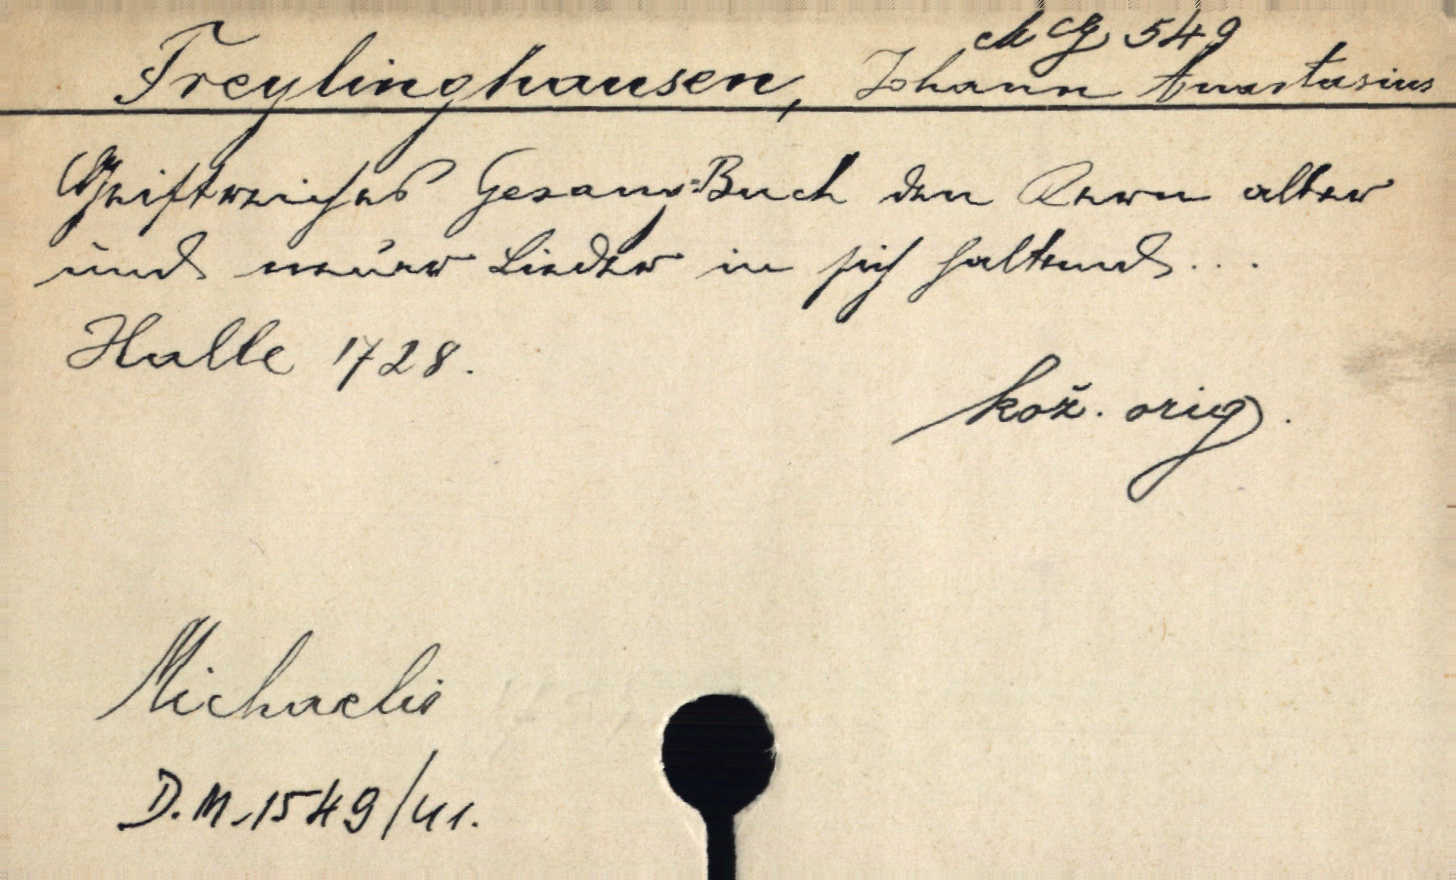 M CG 549
Freylinghausen, Johann Anastasius
Geistreiches Gesang-Buch den Kern alter
und neuer Lieder in sich haltend...
Halle 1728.
kož. orig.
Michaelis
D.M. 1549/41.